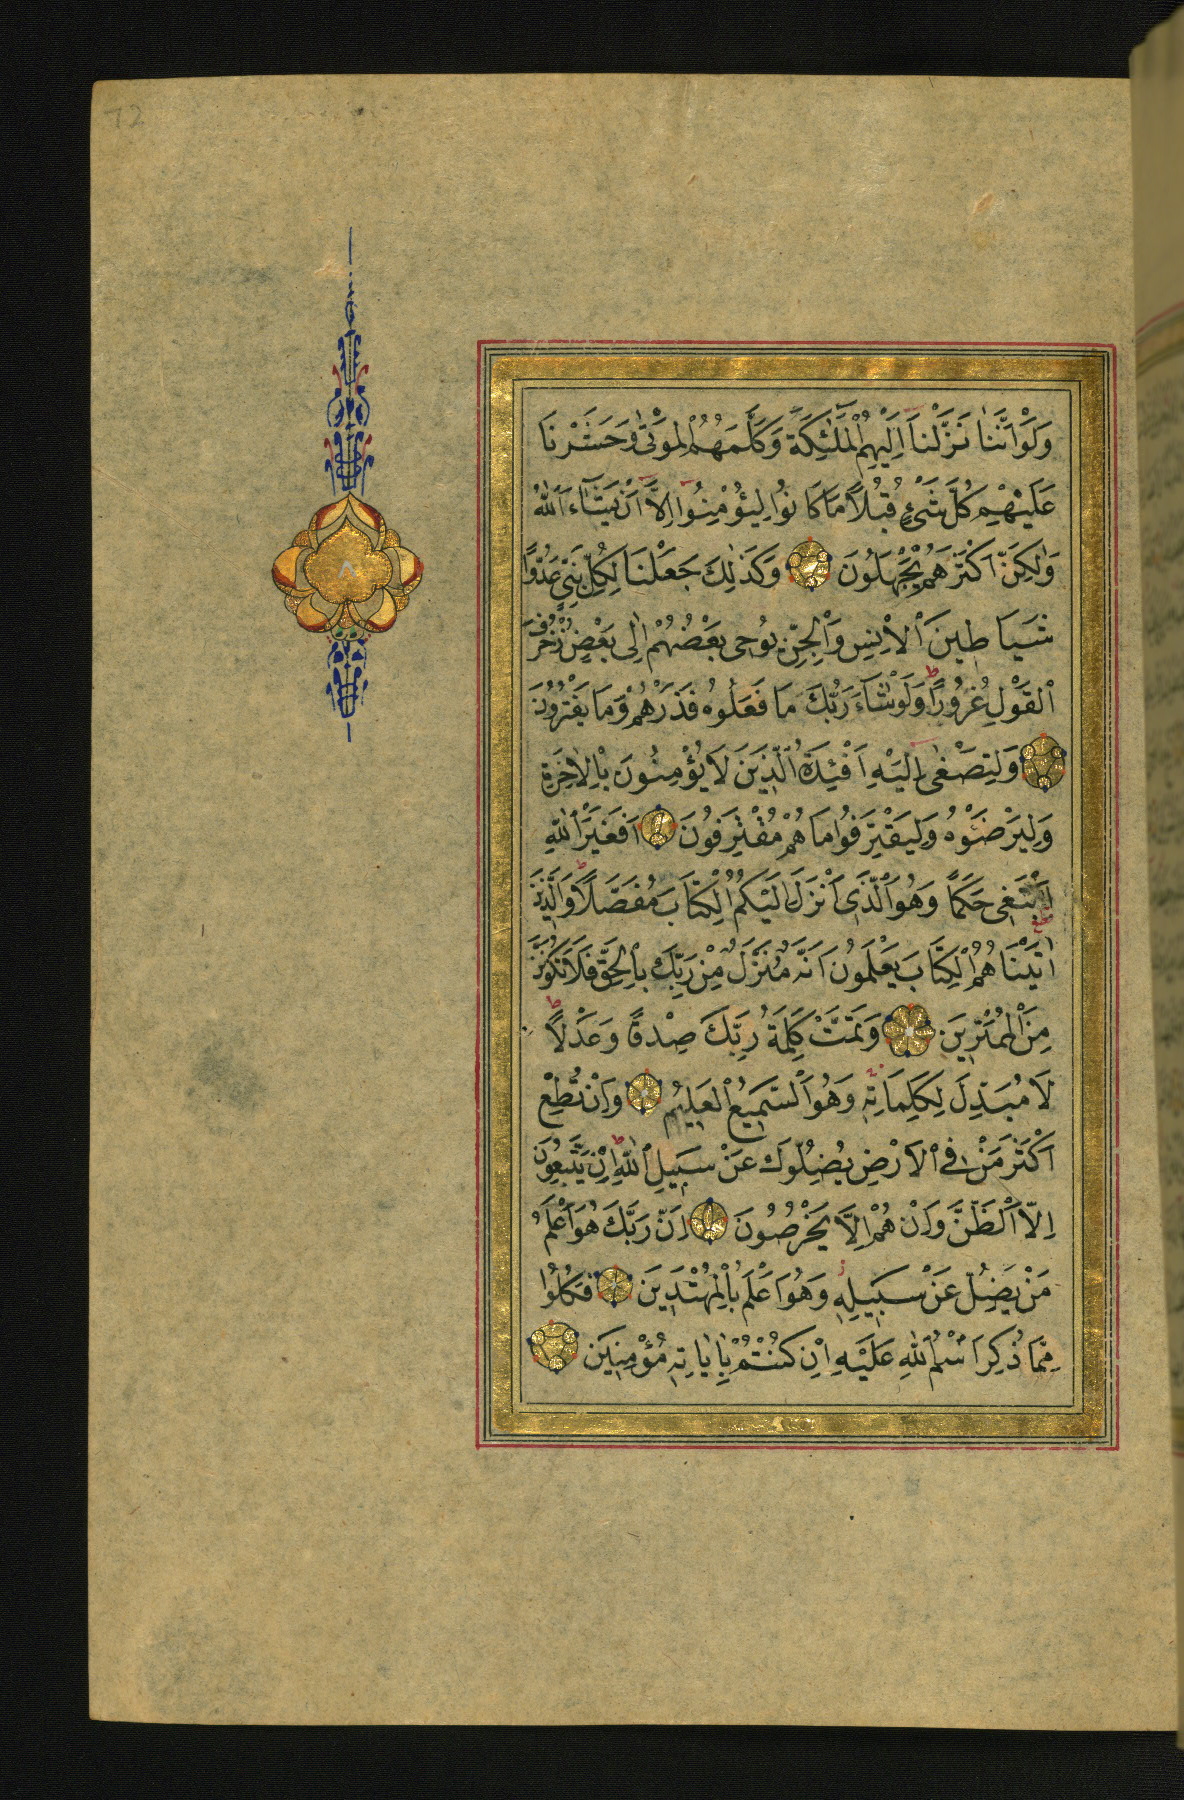 72
٨
وَلَوْ اَنَّنَا نَزَّلْنَا اِلَيْهِمُ الْمَلٰٓئِكَةَ وَكَلَّمَهُمُ الْمَوْتٰى وَحَشَرْنَا
عَلَيْهِمْ كُلَّ شَيْءٍ قُبُلًا مَا كَانُوا لِيُؤْمِنُوا اِلَّا اَنْ يَشَاءَ اللّٰهُ
وَلٰكِنَّ اَكْثَرَهُمْ يَجْهَلُونَ وَكَذٰلِكَ جَعَلْنَا لِكُلِّ نَبِيٍّ عَدُوًّا
شَيَاطِينَ الْاِنْسِ وَالْجِنِّ يُوحِى بَعْضُهُمْ اِلٰى بَعْضٍ زُخْرُفَ
الْقَوْلِ غُرُورًا ط وَلَوْ شَاءَ رَبُّكَ مَا فَعَلُوهُ فَذَرْهُمْ وَمَا يَفْتَرُونَ
وَلِتَصْغٰى اِلَيْهِ اَفْـِٔدَةُ الَّذِينَ لَا يُؤْمِنُونَ بِالْاٰخِرَةِ
وَلِيَرْضَوْهُ وَلِيَقْتَرِفُوا مَا هُمْ مُقْتَرِفُونَ اَفَغَيْرَ اللّٰهِ
اَبْتَغِى حَكَمًا وَهُوَ الَّذِى اَنْزَلَ اِلَيْكُمُ الْكِتَابَ مُفَصَّلًا ط وَالَّذِينَ
اٰتَيْنَاهُمُ الْكِتَابَ يَعْلَمُونَ اَنَّهُ مُنَزَّلٌ مِنْ رَبِّكَ بِالْحَقِّ فَلَا تَكُونَنَّ
مِنَ الْمُمْتَرِينَ وَتَمَّتْ كَلِمَةُ رَبِّكَ صِدْقًا وَعَدْلًا ط
لَا مُبَدِّلَ لِكَلِمَاتِهِ وَهُوَ السَّمِيعُ الْعَلِيمُ وَاِنْ تُطِعْ
اَكْثَرَ مَنْ فِى الْاَرْضِ يُضِلُّوكَ عَنْ سَبِيلِ اللّٰهِ ط اِنْ يَتَّبِعُونَ
اِلَّا الظَّنَّ وَاِنْ هُمْ اِلَّا يَخْرُصُونَ اِنَّ رَبَّكَ هُوَ اَعْلَمُ
مَنْ يَضِلُّ عَنْ سَبِيلِهِ وَهُوَ اَعْلَمُ بِالْمُهْتَدِينَ فَكُلُوا
مِمَّا ذُكِرَ اسْمُ اللّٰهِ عَلَيْهِ اِنْ كُنْتُمْ بِاٰيَاتِهِ مُؤْمِنِينَ